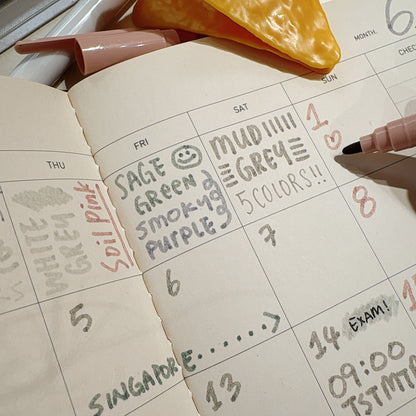 6
MONTH.
THU
FRI
SAT
SUN
WHITE
GREY
Soil Pink
SAGE
GREEN
SMOKY
PURPLE
MUD
GREY
5COLORS!!
1
5
6
7
8
SINGAPORE......>
13
14 EXAM!
09:00